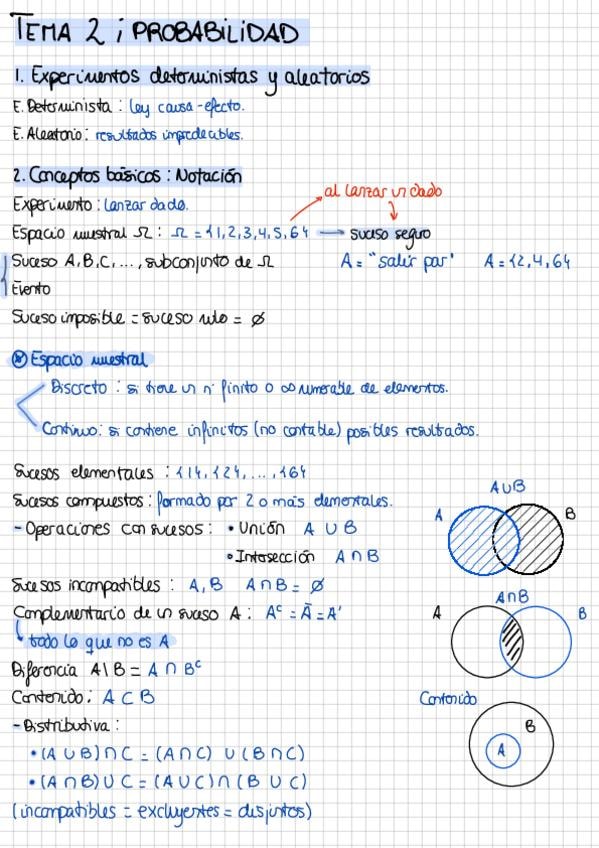 TEMA 2 ; PROBABILIDAD
1. Experimentos deterministas y aleatorios
E. Determinista : ley causa-efecto.
E. Aleatorio : resultados impredecibles.
2. Conceptos básicos : Notación
al lanzar un dado
Experimento : lanzar dado.
Espacio muestral Ω : Ω = {1,2,3,4,5,6} → suceso seguro
Suceso A,B,C,..., subconjunto de Ω A = "salir par" A = {2,4,6}
Evento
Suceso imposible = suceso nulo = ∅
Espacio muestral
Discreto : si tiene un nº finito o ∞ numerable de elementos.
Continuo : si contiene infinitos (no contable) posibles resultados.
Sucesos elementales : {1}, {2}, ..., {6}
Sucesos compuestos : formado por 2 o más elementales.
A∪B
A B
- Operaciones con sucesos : • Unión A ∪ B
• Intersección A ∩ B
Sucesos incompatibles : A, B A∩B = ∅
A∩B
A B
Complementario de un suceso A : Aᶜ = Ā = A'
todo lo que no es A
Diferencia A\B = A ∩ Bᶜ
Contenido : A ⊂ B
Contenido
B
A
- Distributiva :
• (A ∪ B) ∩ C = (A ∩ C) ∪ (B ∩ C)
• (A ∩ B) ∪ C = (A ∪ C) ∩ (B ∪ C)
(incompatibles = excluyentes = disjuntos)